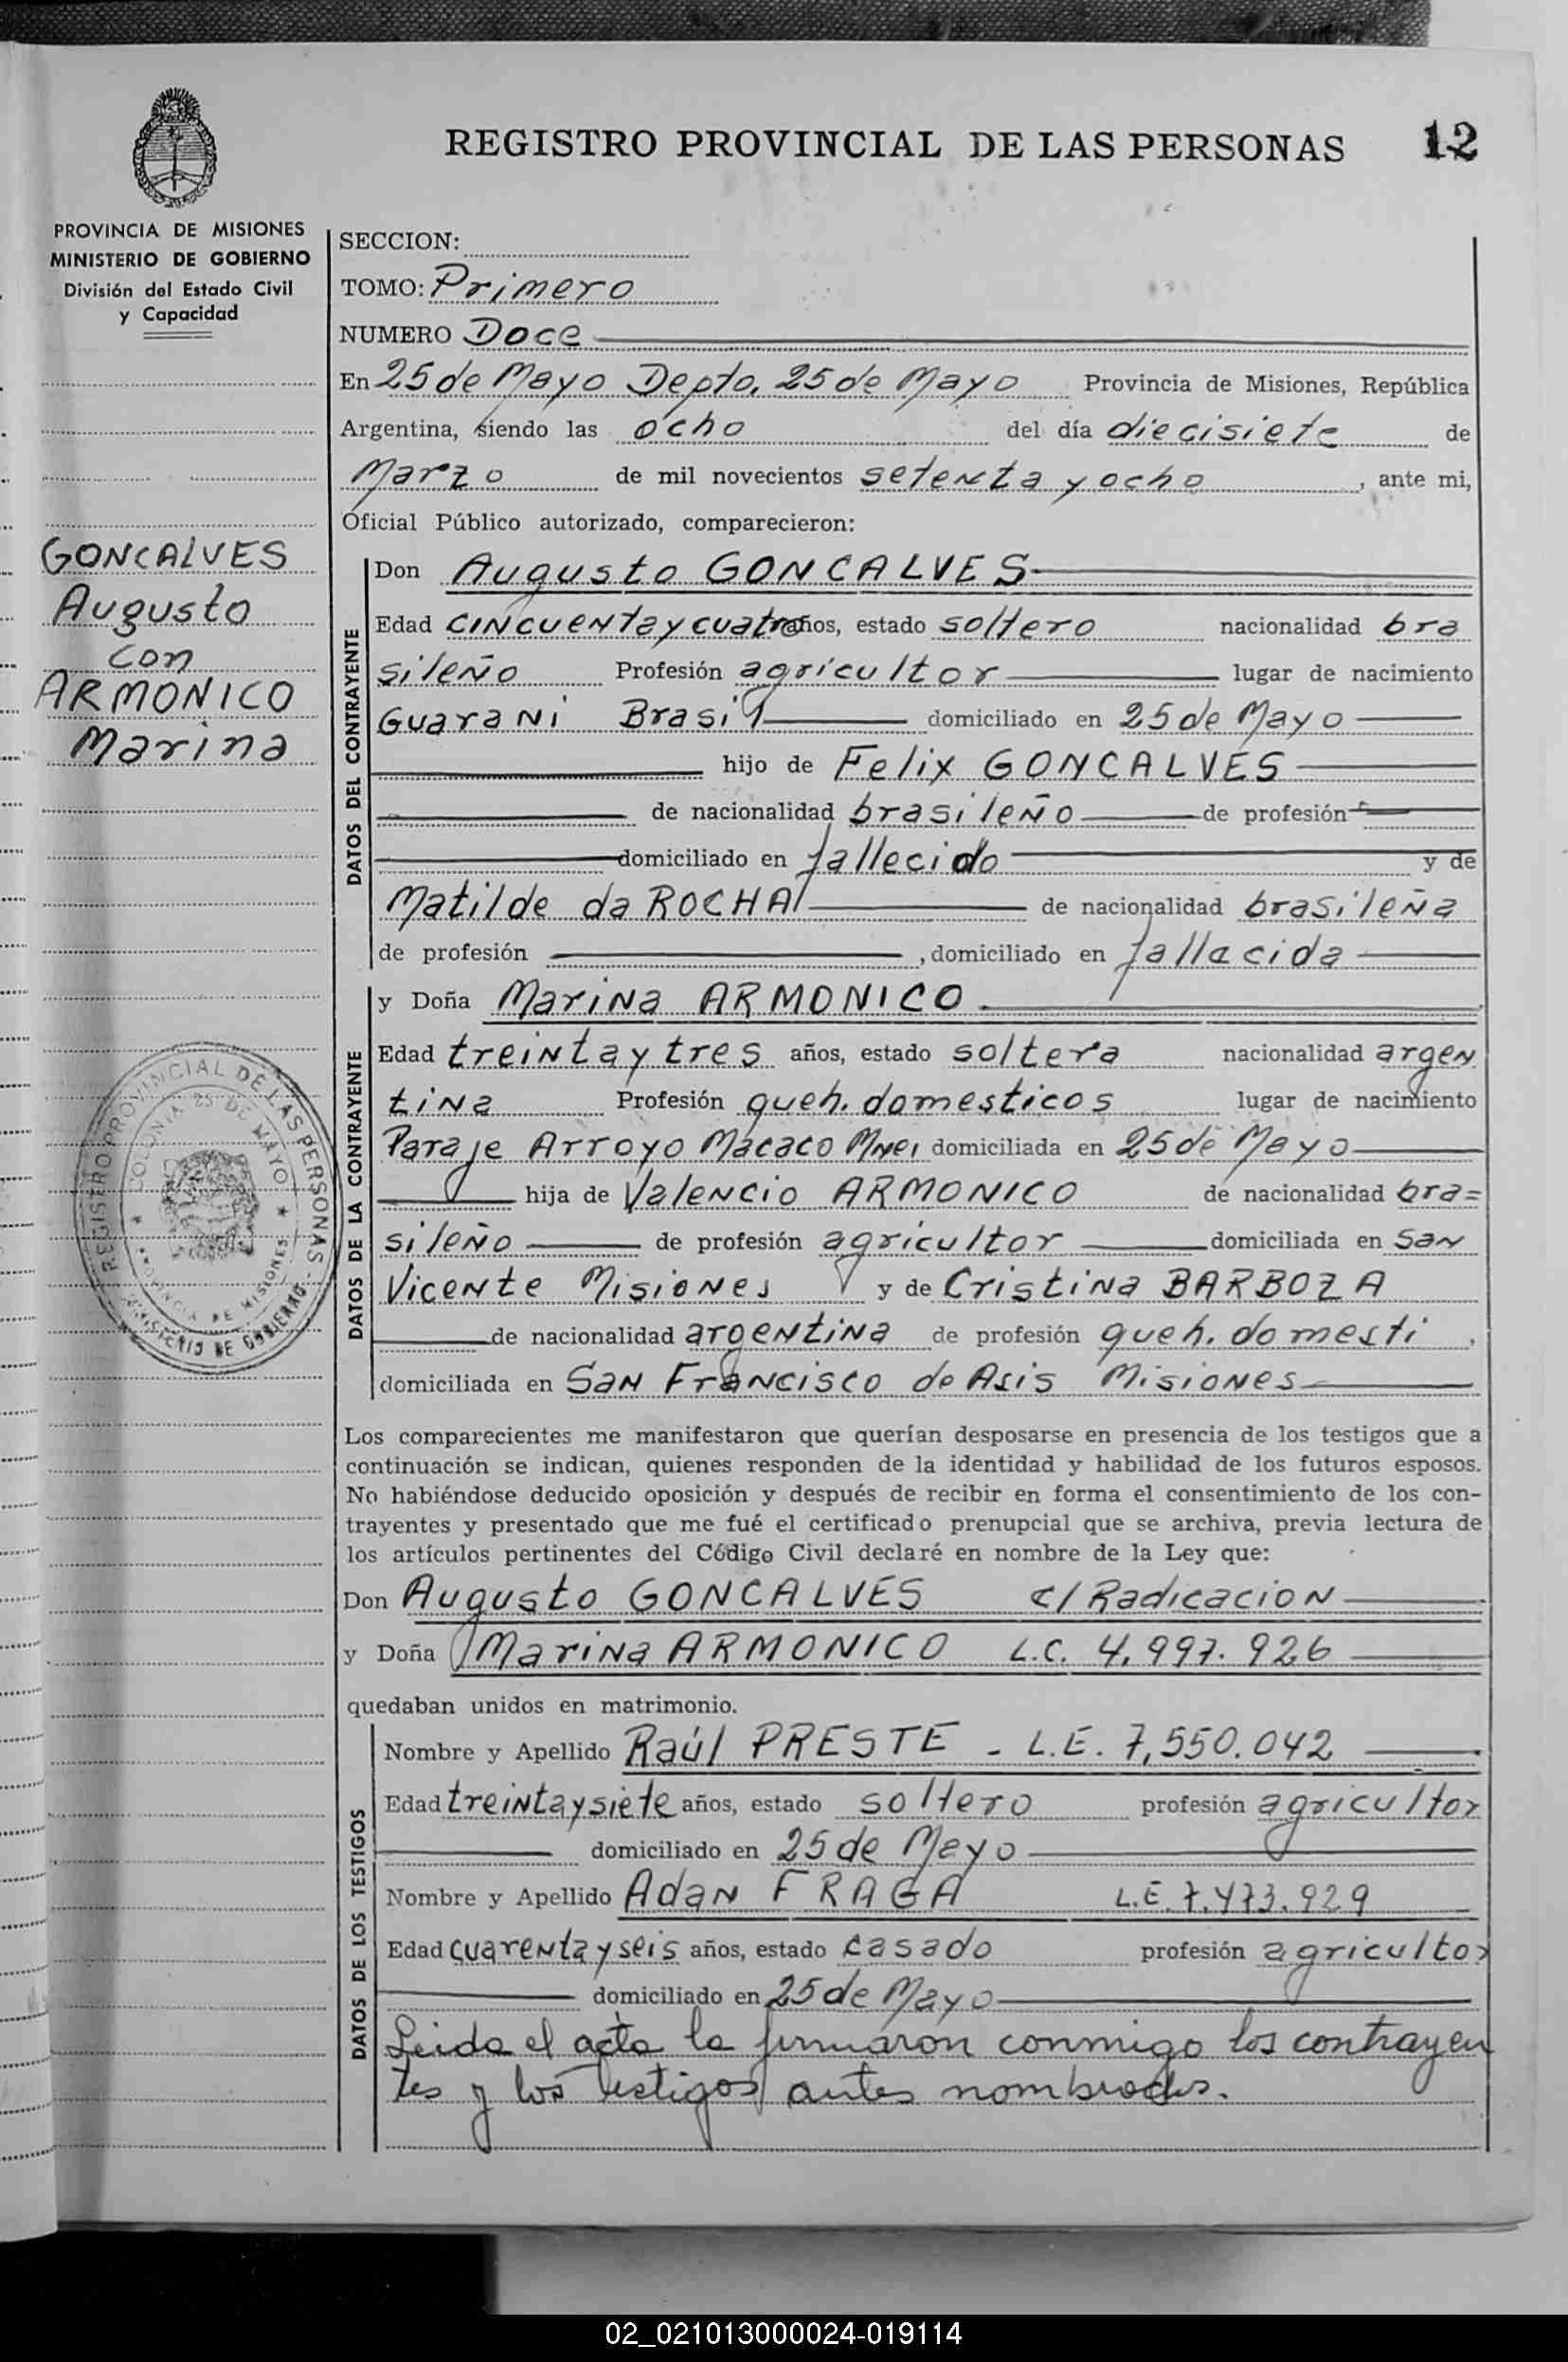 REGISTRO PROVINCIAL DE LAS PERSONAS 12
PROVINCIA DE MISIONES
MINISTERIO DE GOBIERNO
División del Estado Civil
y Capacidad
GONCALVES
Augusto
con
ARMONICO
Marina
REGISTRO PROVINCIAL DE LAS PERSONAS
MINISTERIO DE GOBIERNO
COLONIA 25 DE MAYO
PROVINCIA DE MISIONES
SECCION:
TOMO: Primero
NUMERO Doce
En 25 de Mayo Depto. 25 de Mayo Provincia de Misiones, República
Argentina, siendo las ocho del día diecisiete de
Marzo de mil novecientos setenta y ocho, ante mi,
Oficial Público autorizado, comparecieron:
DATOS DEL CONTRAYENTE
Don Augusto GONCALVES
Edad cincuenta y cuatro años, estado soltero nacionalidad bra
sileño Profesión agricultor lugar de nacimiento
Guarani Brasil domiciliado en 25 de Mayo
hijo de Felix GONCALVES
de nacionalidad brasileño de profesión
domiciliado en fallecido y de
Matilde da ROCHA de nacionalidad brasileña
de profesión , domiciliado en fallacida
DATOS DE LA CONTRAYENTE
y Doña Marina ARMONICO
Edad treinta y tres años, estado soltera nacionalidad argen
tina Profesión queh. domesticos lugar de nacimiento
Paraje Arroyo Macaco Mnei domiciliada en 25 de Mayo
hija de Valencio ARMONICO de nacionalidad bra=
sileño de profesión agricultor domiciliada en San
Vicente Misiones y de Cristina BARBOZA
de nacionalidad argentina de profesión queh. domesti ,
domiciliada en San Francisco de Asis Misiones
Los comparecientes me manifestaron que querían desposarse en presencia de los testigos que a
continuación se indican, quienes responden de la identidad y habilidad de los futuros esposos.
No habiéndose deducido oposición y después de recibir en forma el consentimiento de los con-
trayentes y presentado que me fué el certificado prenupcial que se archiva, previa lectura de
los artículos pertinentes del Código Civil declaré en nombre de la Ley que:
Don Augusto GONCALVES c/ Radicacion
y Doña Marina ARMONICO L.C. 4.997.926
quedaban unidos en matrimonio.
DATOS DE LOS TESTIGOS
Nombre y Apellido Raúl PRESTE - L.E. 7,550.042
Edad treinta y siete años, estado soltero profesión agricultor
domiciliado en 25 de Mayo
Nombre y Apellido Adan FRAGA L.E. 7.473.929
Edad cuarenta y seis años, estado casado profesión agricultor
domiciliado en 25 de Mayo
Leida el acta la firmaron conmigo los contrayen
tes y los testigos antes nombrados.
02_021013000024-019114